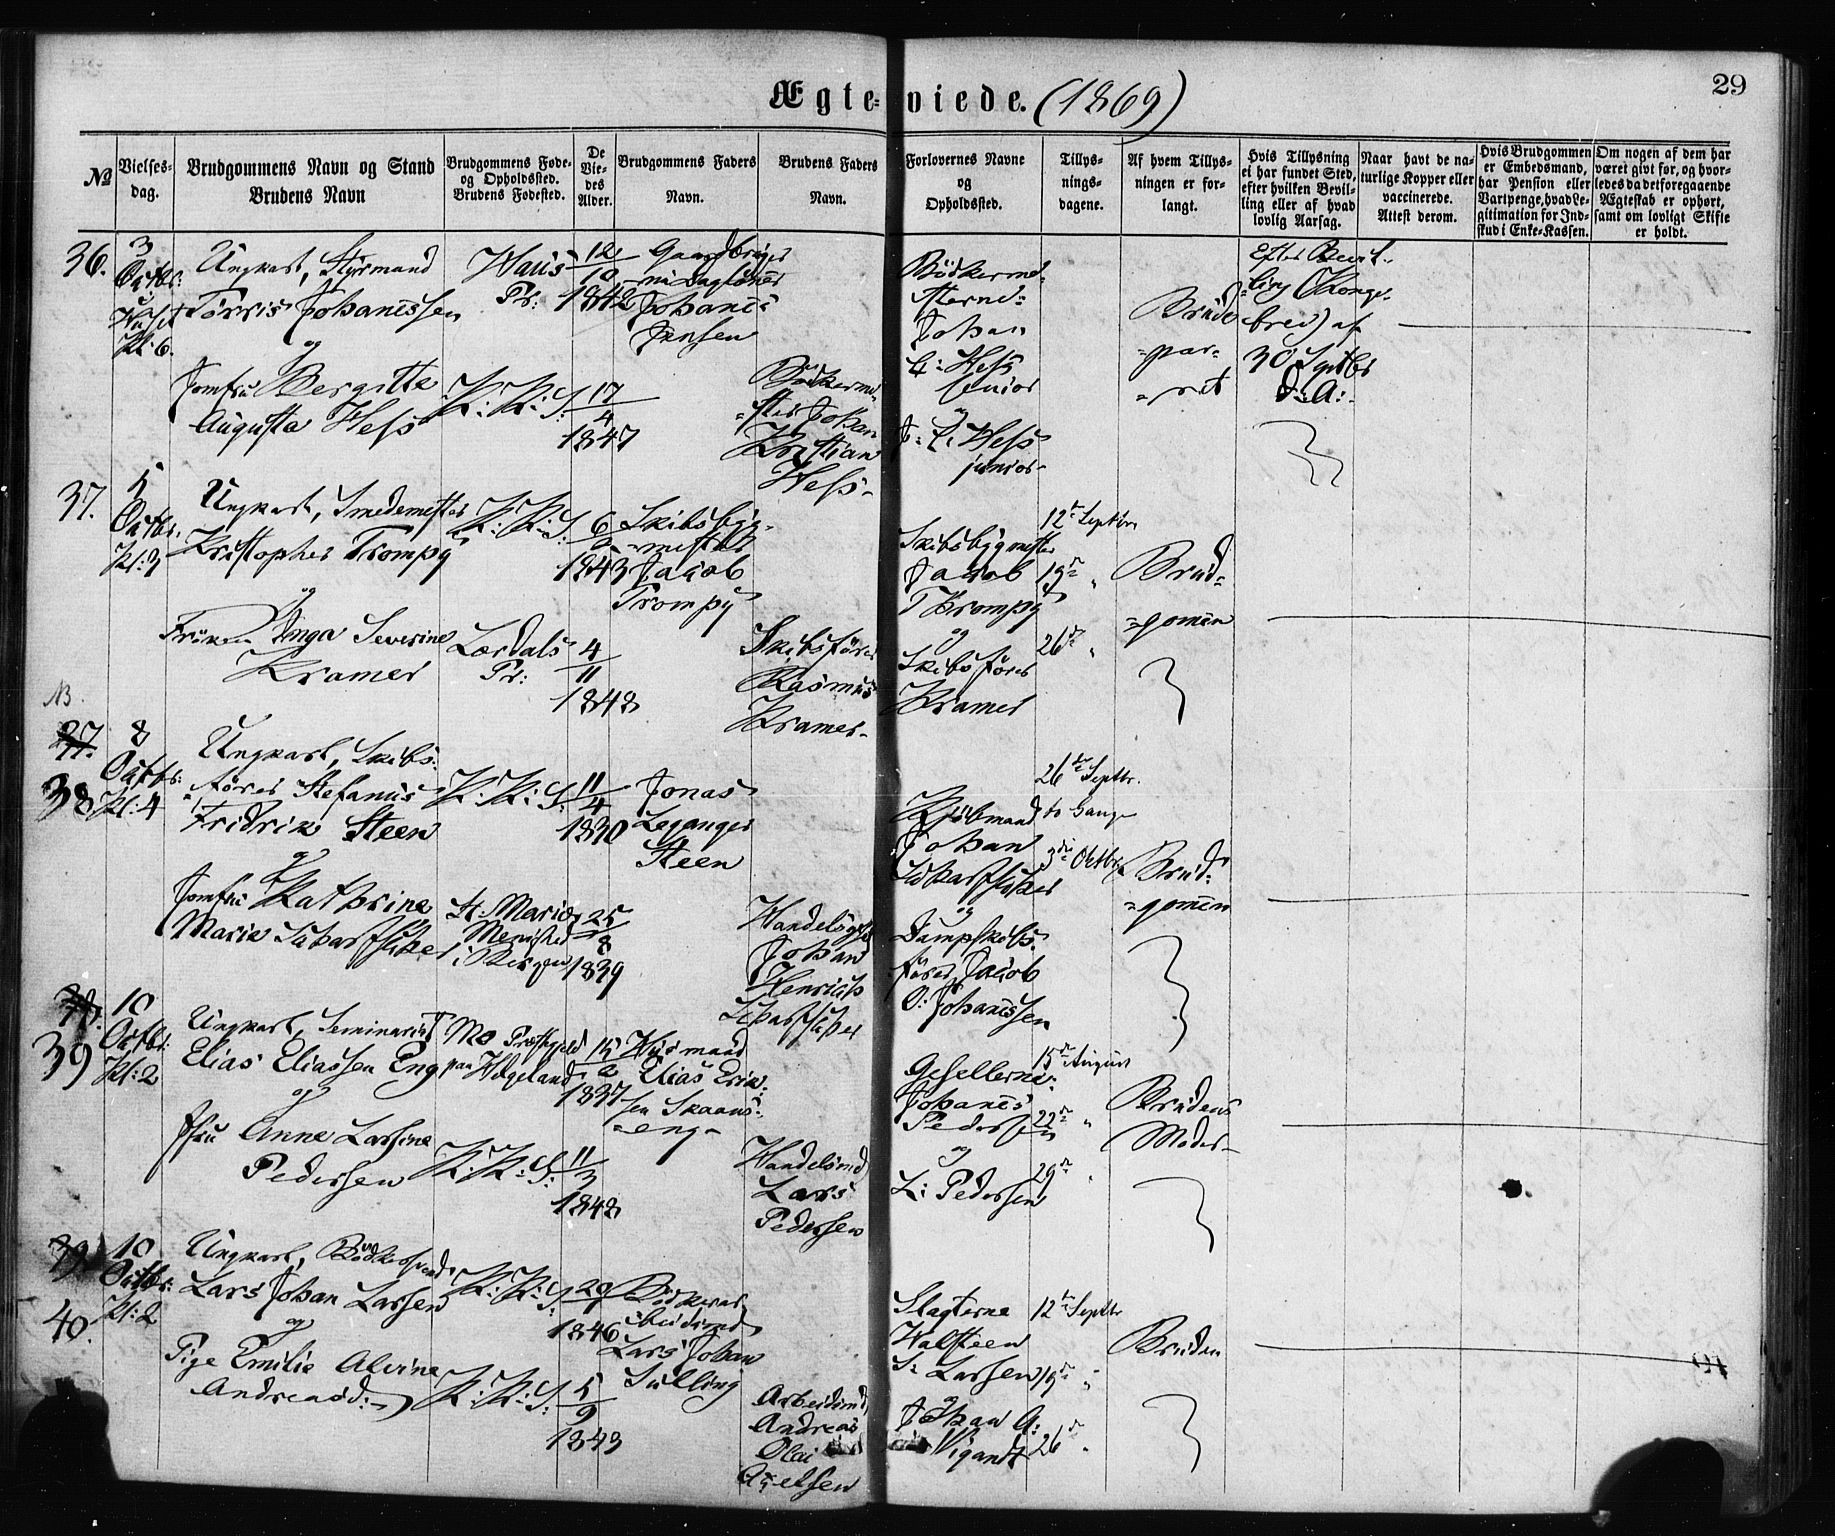 Ægte-viede. (1869)
29
No
Vielses-
dag.
Brudgommens Navn og Stand
Brudens Navn
Brudgommens Føde-
og Opholdssted.
Brudens Fødested.
De
Vie-
des
Alder.
Brudgommens Faders
Navn.
Brudens Faders
Navn.
Forlovernes Navne
og
Opholdssted.
Tillys-
nings-
dagene.
Af hvem Tillys-
ningen er for-
langt.
Hvis Tillysning
ei har fundet Sted,
efter hvilken Bevil-
ling eller af hvad
lovlig Aarsag.
Naar havt de na-
turlige Kopper eller
vaccinerede.
Attest derom.
Hvis Brudgommen
er Embedsmand,
har Pension eller
Vartpenge, hvad Le-
gitimation for Ind-
skud i Enke-Kassen.
Om nogen af dem har
været givt før, og hvor-
ledes da det foregaaende
Ægteskab er ophørt,
samt om lovligt Skifte
er holdt.
36.
3
Octbr:
Kl: 6.
Ungkarl, Styrmand
Tørris Johanessen
og
Jomfru Bergitte
Augusta Hess
Haus
Pr:
K: K: S:
12
10
1842
17
4
1847
Johanes
Jensen
Bødkerme-
ster Johan
Kristian
Hess
Johan
C: Hess
senior
og
J: C: Hess
junior
Brude
par-
ret
Efter Bevil-
ling (Konge-
brev) af
30 Septbr
d: A:
37.
5
Octbr.
Kl: 7
Ungkarl, Smedemester
Kristopher Trompy
og
Inga Severine
Kramer
K: K: S:
Lærdals
Pr:
6
1843
4
11
1848
Skibsbyg-
mester
Jacob
Trompy
Skibsfører
Rasmus
Kramer
Skibsbygmester
Jacob
Thrompy
og
Skibsfører
Kramer
12te Septbr
19de "
26de "
Brud-
gomen
NB.
37
38
8
Octbr:
Kl: 4
Ungkarl, Skibs-
fører Stefanus
Fridrik Steen
og
Jomfru Kathrine
Marie
K: K: S:
St. Maria
Menighed
i Bergen
11
4
1830
25
8
1839
Jonas
Leganger
Steen
Johan
Henrich
Kjøbmand
Johan
og
Dampskibs-
fører Jacob
O: Johanessen
26de Septbr.
to Gange
3die Oktbr
Brud-
gomen
39
10
Octbr:
Kl: 2
Ungkarl, Seminarist
Elias Eliassen Eng
og
Jfru Anne Larsine
Pedersen
Mo Præstegjeld
paa Helgeland
K: K: S:
15
2
1837
11
3
1848
Husmand
Elias Erik-
sen Skaans-
eng
Handelsmd
Lars
Pedersen
Gesellerne
Johanes
Pedersen
og
L: Pedersen
15de August
22de "
29de "
Brudens
Moder
39
40.
10
Octbr:
Kl: 2
Ungkarl, Bødkersvend
Lars Johan Larsen
og
Pige Emilie Alvine
Andreasd:
K: K: S:
K: K: S:
20
1846
5
9
1843
Lars Johan
Sulling
Arbeidsmd
Andreas
Olai
Axelsen
Slagterne
Walsteen
S: Larsen
Johan A:
Wigandt
12te Septbr
19de "
26de "
Bruden